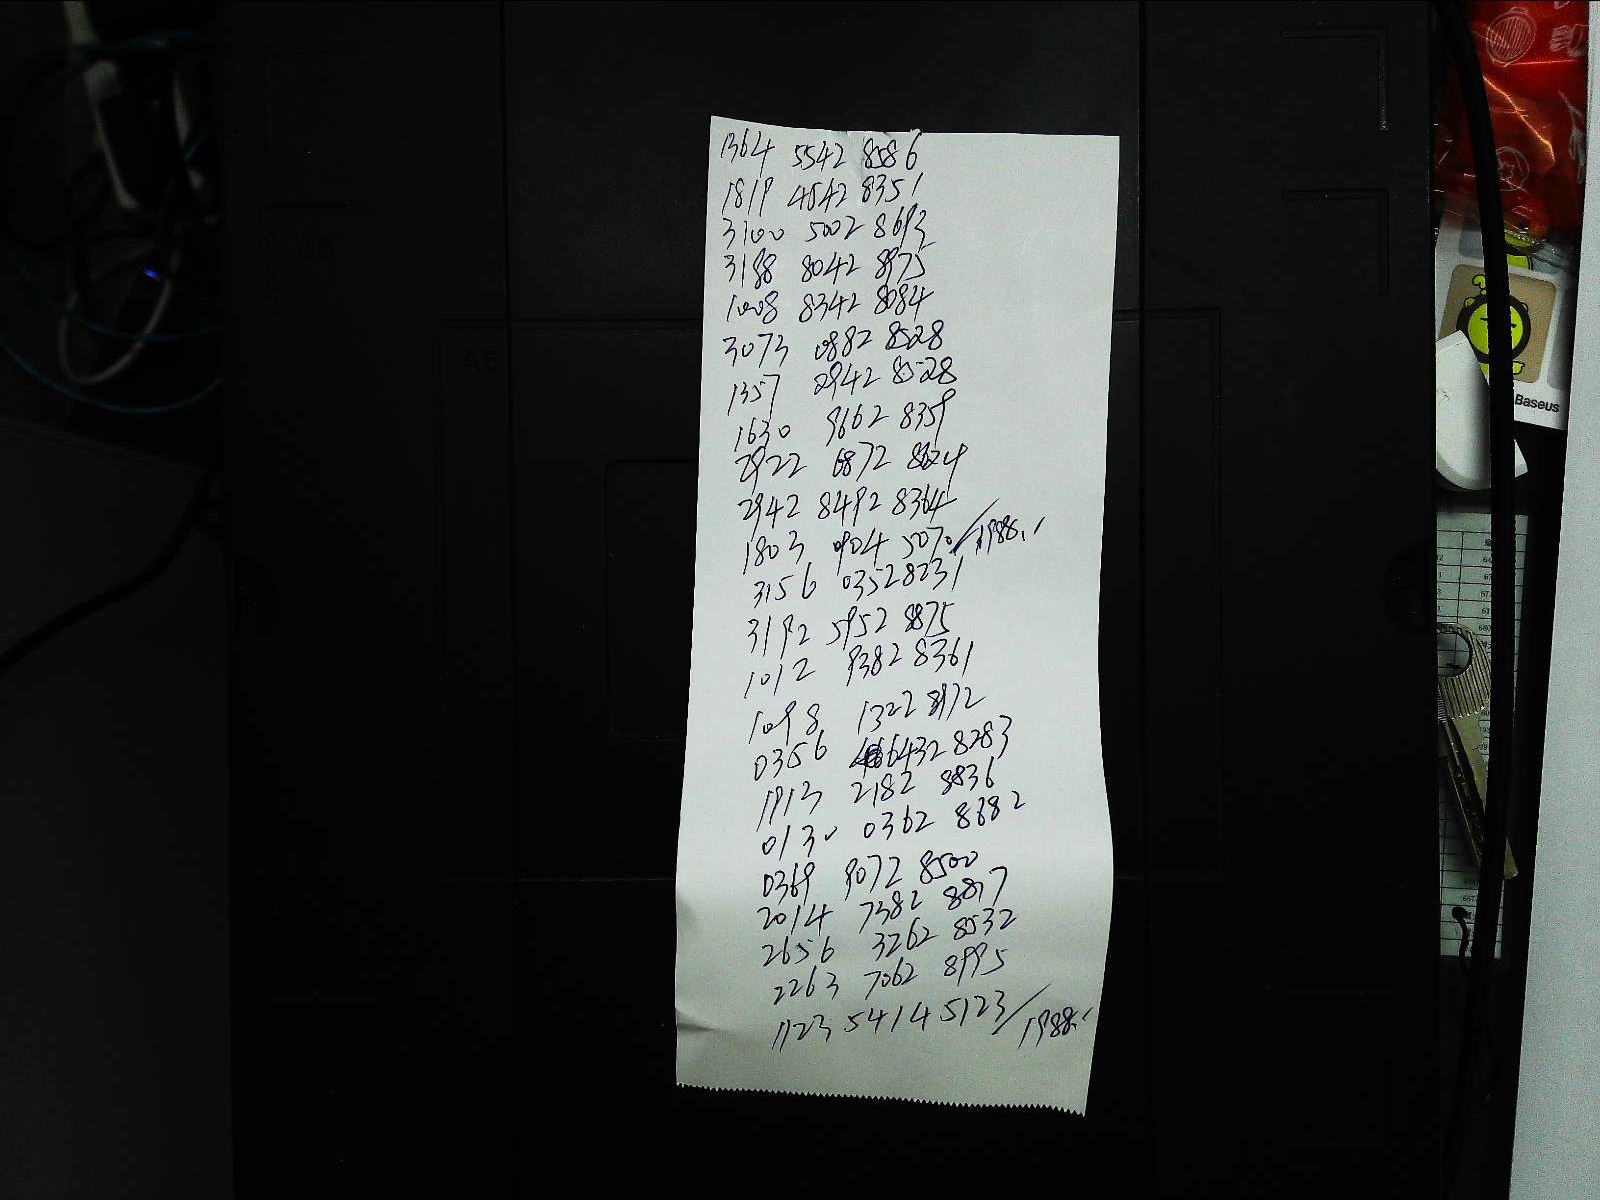 1364 5542 8586
1819 4542 8351
3100 5002 8693
3198 8042 8975
1008 8342 8084
3073 0882 8528
1357 2942 8528
1630 9662 8359
2922 6872 8624
2942 8492 8364
1803 0904 5070/1988.''
3156 0352 8231
3192 5952 8875
1012 9382 8361
1098 1322 8972
0356 6432 8283
1913 2182 8836
0130 0362 8682
0369 9072 8500
2014 7382 8817
2656 3262 8532
2263 7062 8995
1123 5414 5123/1988.''
A5
Baseus